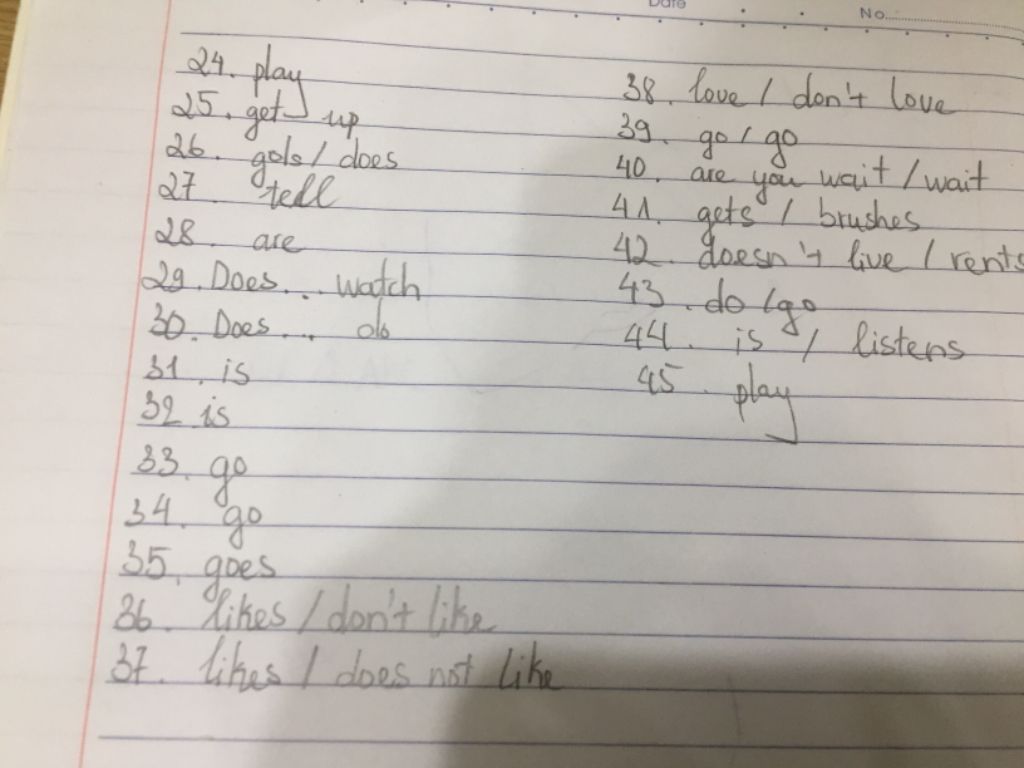 Date
No.
24. play
25. get up
26. gols / does
27 tell
28. are
29. Does... watch
30. Does... do
31. is
32 is
33. go
34. go
35. goes
36. likes / don't like
37. likes / does not like
38. love / don't love
39. go / go
40. are you wait / wait
41. gets / brushes
42. doesn't live / rents
43. do / go
44. is / listens
45. play